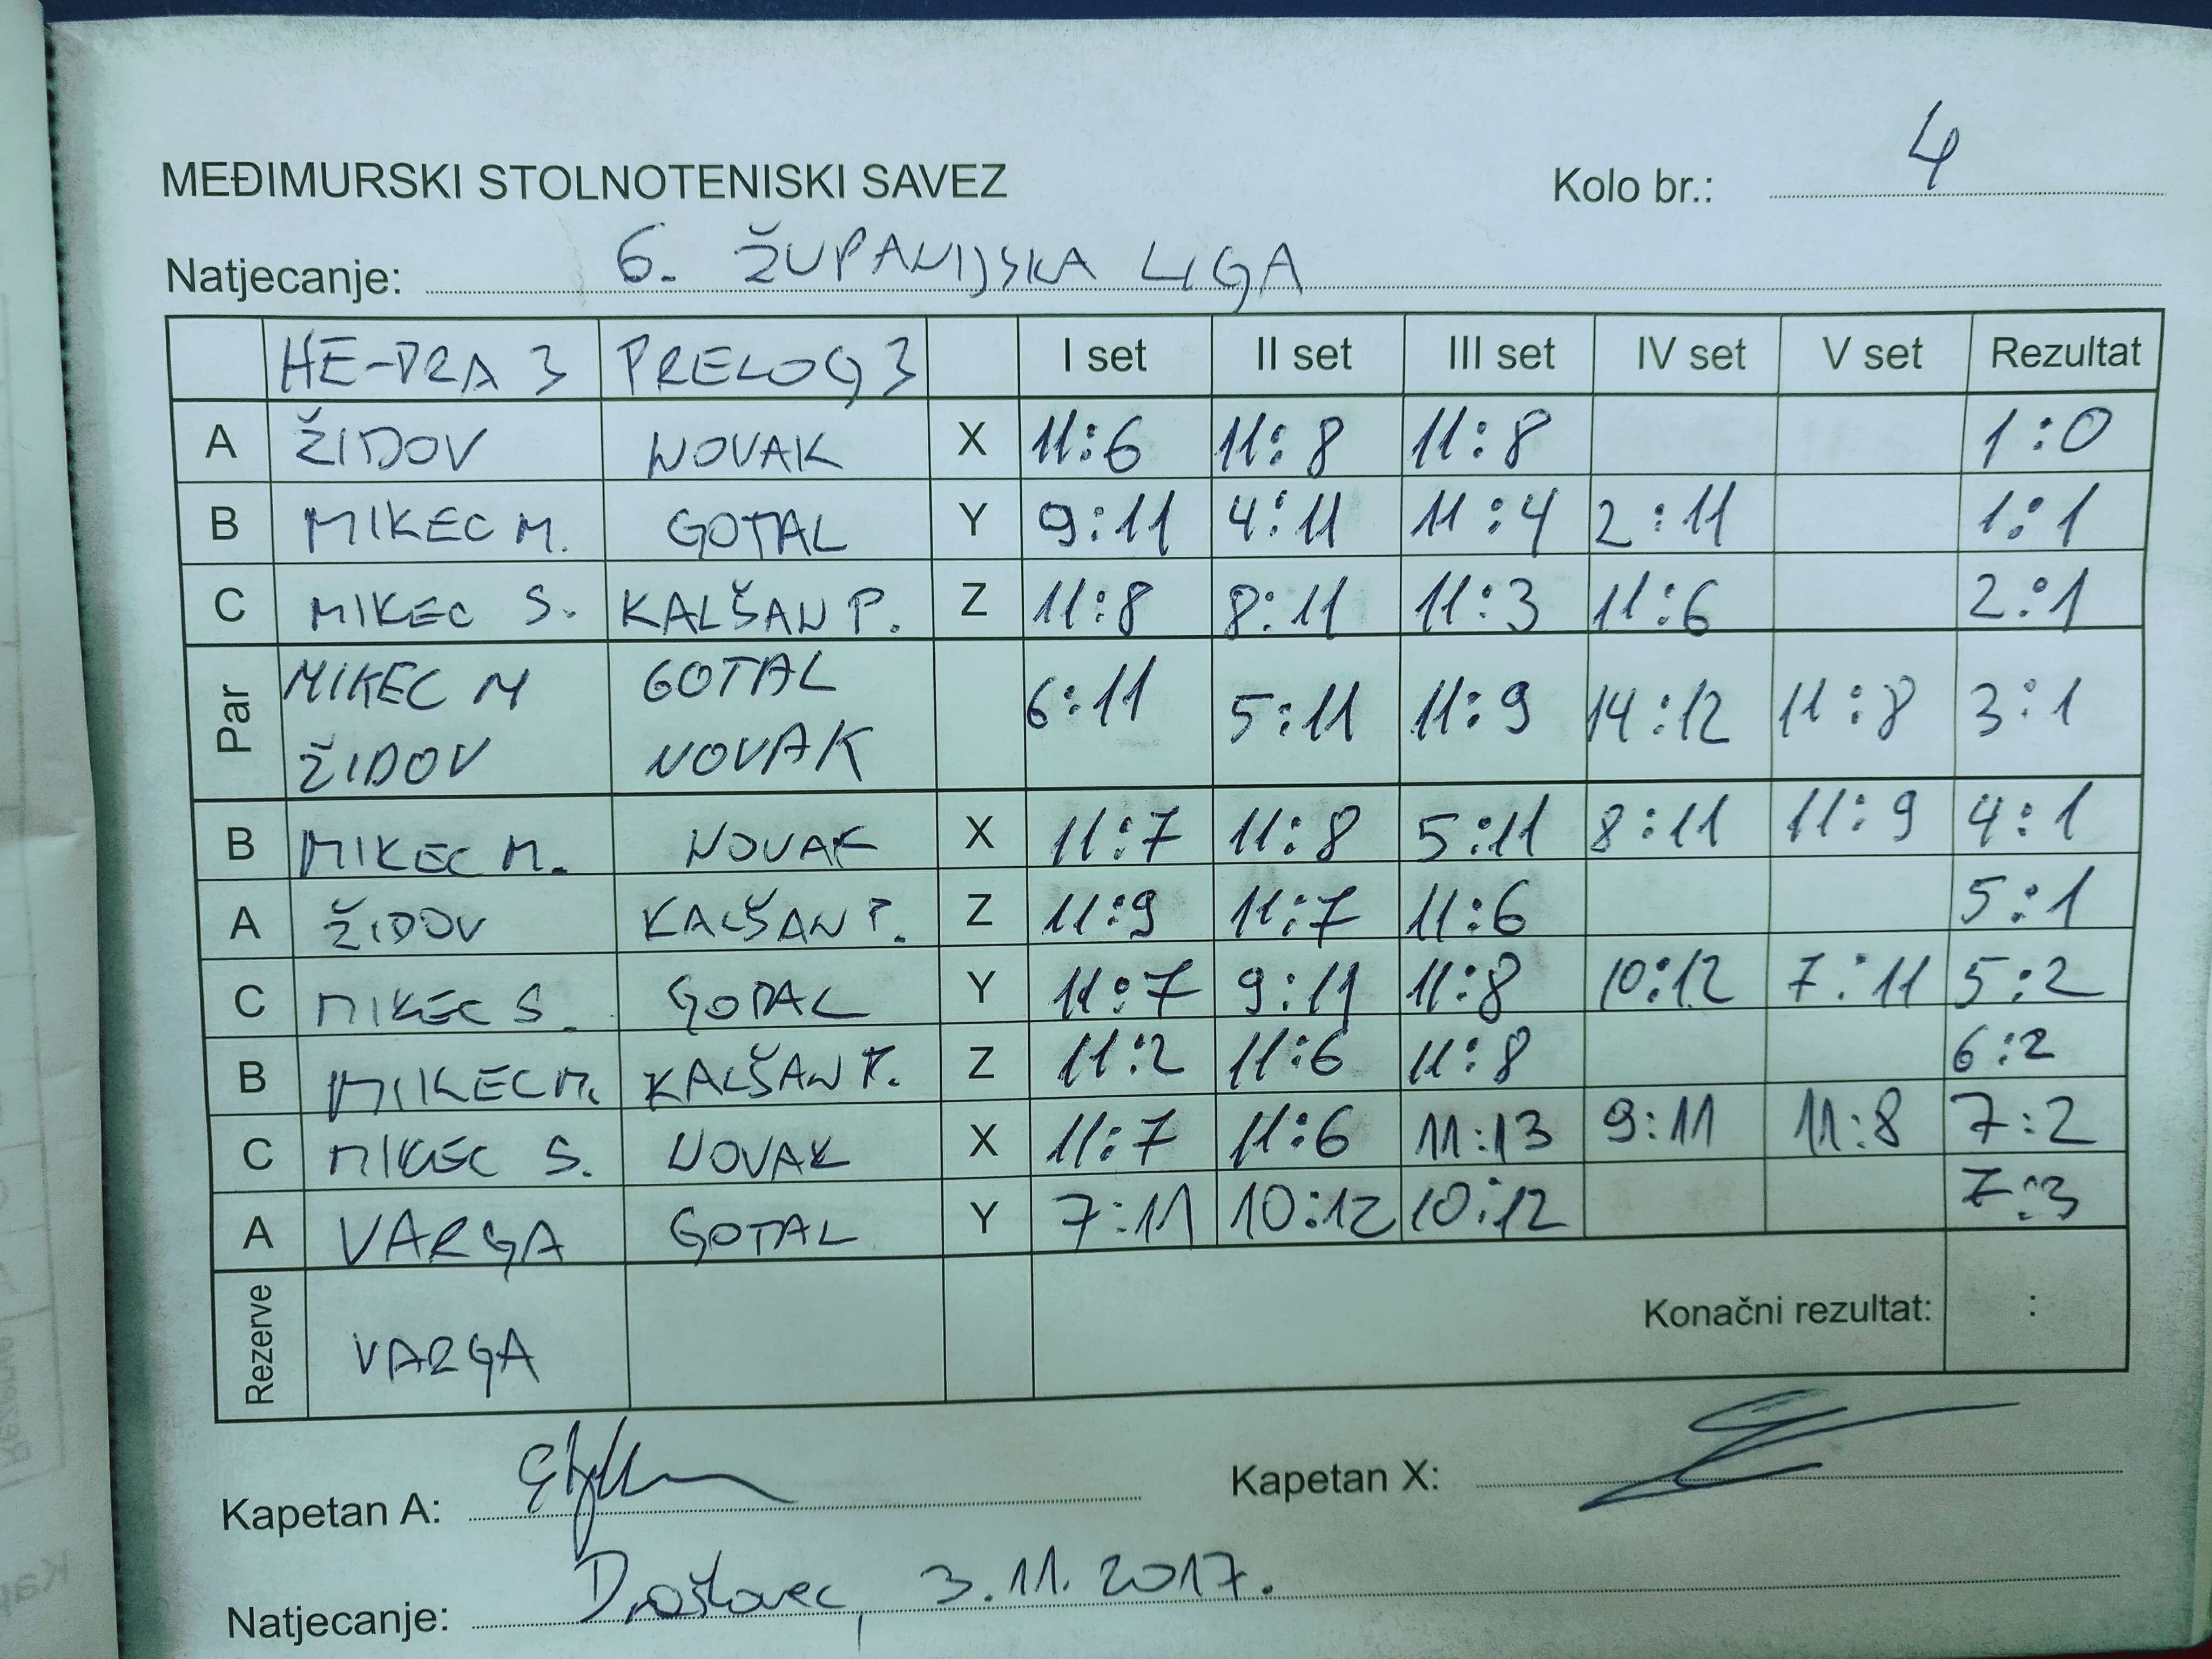 MEĐIMURSKI STOLNOTENISKI SAVEZ Kolo br.: 4
Natjecanje: 6. ŽUPANIJSKA LIGA
HE-DRA 3 PRELOG 3 I set II set III set IV set V set Rezultat
A ŽIDOV NOVAK X 11:6 11:8 11:8 1:0
B MIKEC M. GOTAL Y 9:11 4:11 11:4 2:11 1:1
C MIKEC S. KALŠAN P. Z 11:8 8:11 11:3 11:6 2:1
Par MIKEC M GOTAL 6:11 5:11 11:9 14:12 11:8 3:1
ŽIDOV NOVAK
B MIKEC M. NOVAK X 11:7 11:8 5:11 8:11 11:9 4:1
A ŽIDOV KALŠAN P. Z 11:9 11:7 11:6 5:1
C MIKEC S. GOTAL Y 11:7 9:11 11:8 10:12 7:11 5:2
B MIKEC M. KALŠAN P. Z 11:2 11:6 11:8 6:2
C MIKEC S. NOVAK X 11:7 11:6 11:13 9:11 11:8 7:2
A VARGA GOTAL Y 7:11 10:12 10:12 7:3
Rezerve VARGA Konačni rezultat: :
Kapetan A: Kapetan X:
Natjecanje: Draškovec, 3.11.2017.